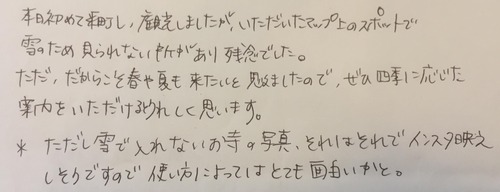 本日初めて来町し、観光しましたが、いただいたマップ上のスポットで
雪のため見られない所があり残念でした。
ただ、だからこそ春や夏も来たいと思えましたので、ぜひ四季に応じた
案内をいただけるとうれしく思います。
* ただし雪で入れないお寺の写真、それはそれでインスタ映え
しそうですので使い方によってはとても面白いかと。